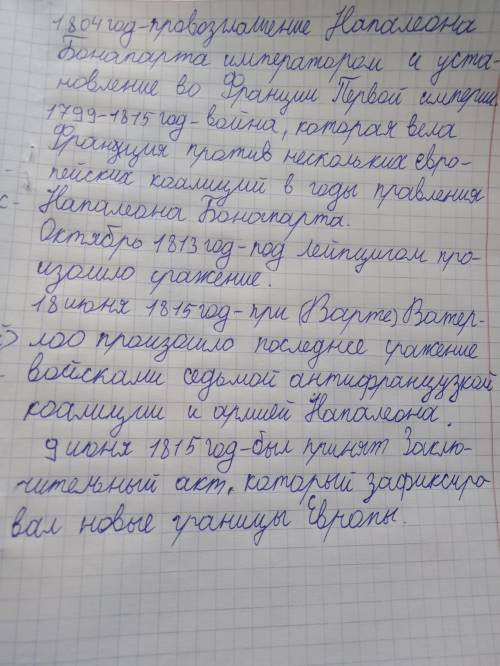 1804 год-провозглашение Напалеона
Бонапарта императором и уста-
новление во Франции Первой империи
1799-1815 год-война, которая вела
Франция против нескольких евро-
пейских коалиций в годы правления
Напалеона Бонапарта.
Октябрь 1813 год-под Лейпцигом про-
изошло сражение.
18 июня 1815 год-при (Варте) Ватер-
лоо произошло последнее сражение
войсками седьмой антифранцузкой
коалиции и армией Напалеона.
9 июня 1815 год-был принят Заклю-
чительный акт, который зафиксиро-
вал новые границы Европы.